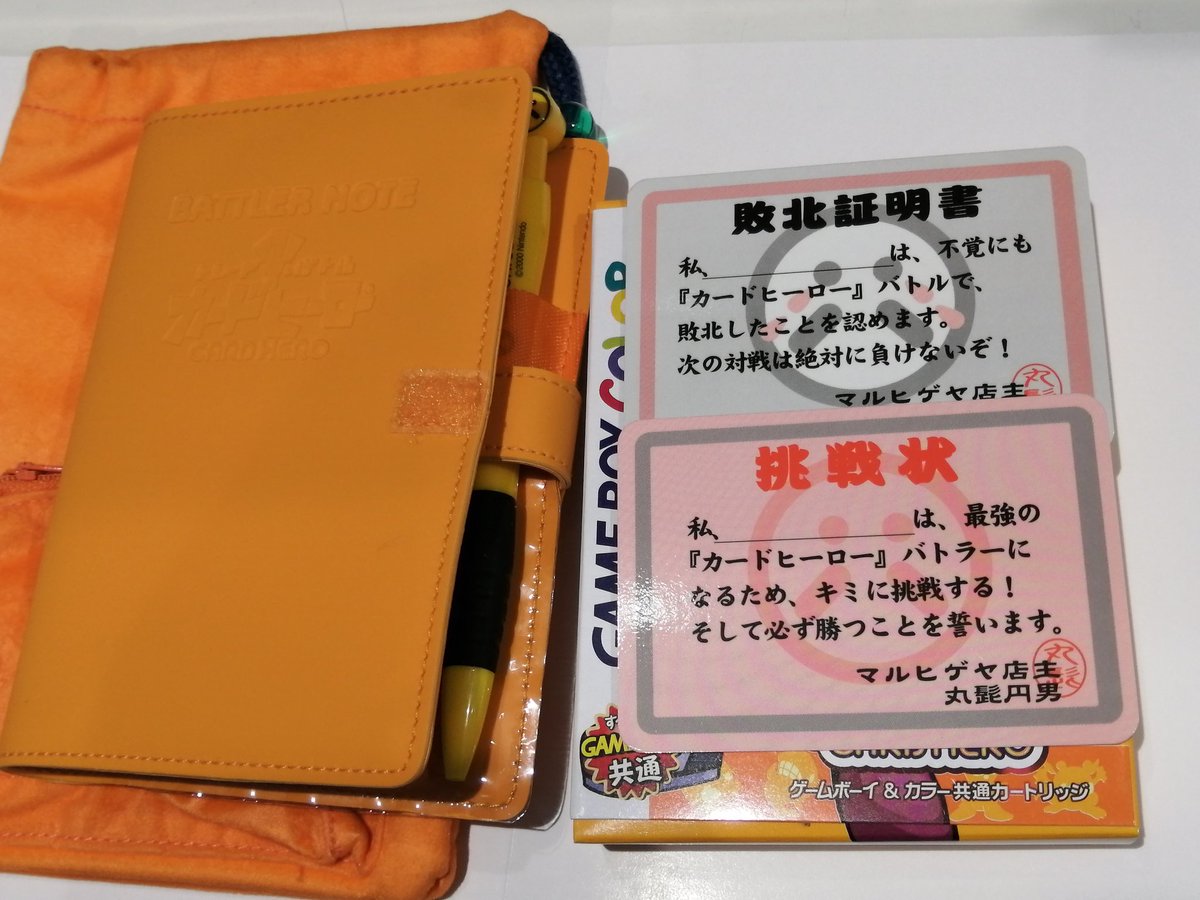 BATTLER NOTE
©2000 Nintendo
GAME BOY COLOR
敗北証明書
私、は、不覚にも
『カードヒーロー』バトルで、
敗北したことを認めます。
次の対戦は絶対に負けないぞ！
マルヒゲヤ店主
挑戦状
私、は、最強の
『カードヒーロー』バトラーに
なるため、キミに挑戦する！
そして必ず勝つことを誓います。
マルヒゲヤ店主
丸髭円男
共通
CARD HERO
ゲームボーイ＆カラー共通カートリッジ